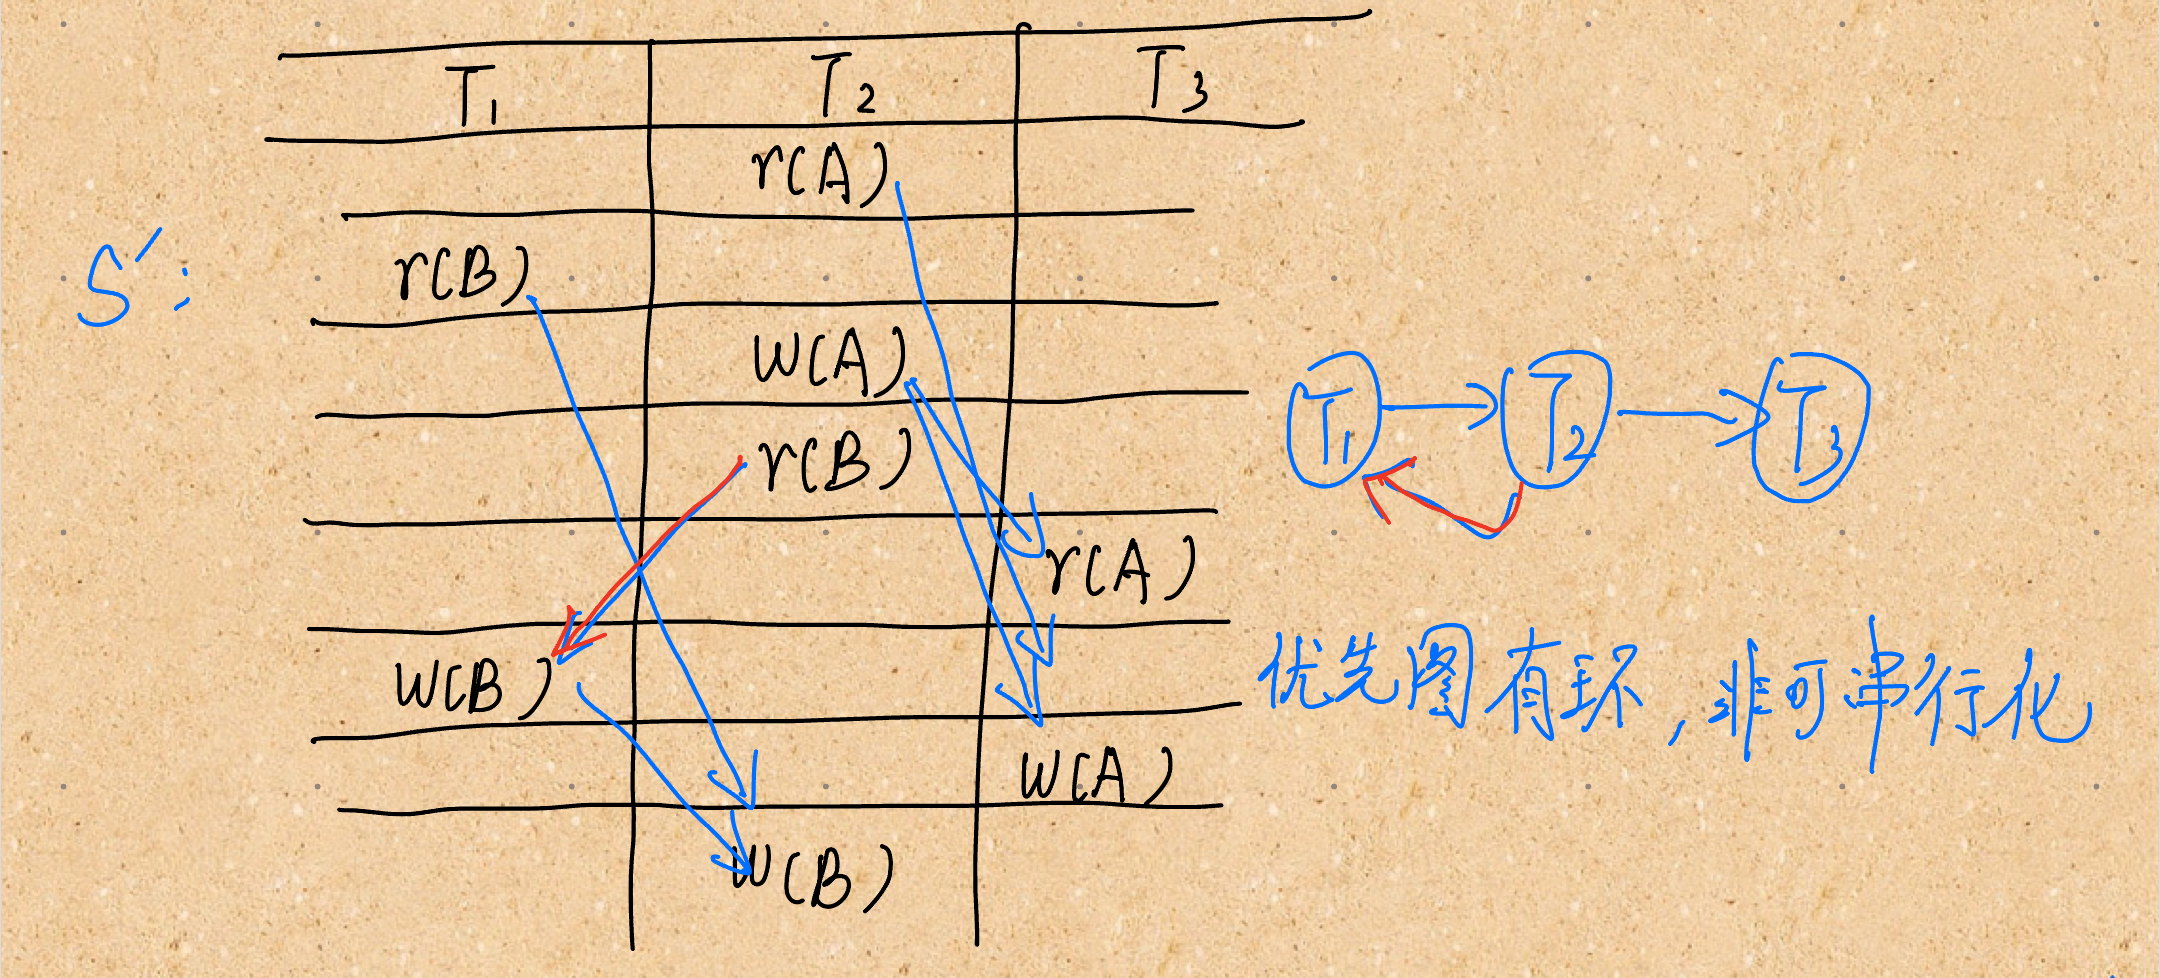 T₁ T₂ T₃
r(A)
S′: r(B)
W(A)
r(B)
r(A)
W(B)
W(A)
W(B)
T₁ T₂ T₃
优先图有环,非可串行化